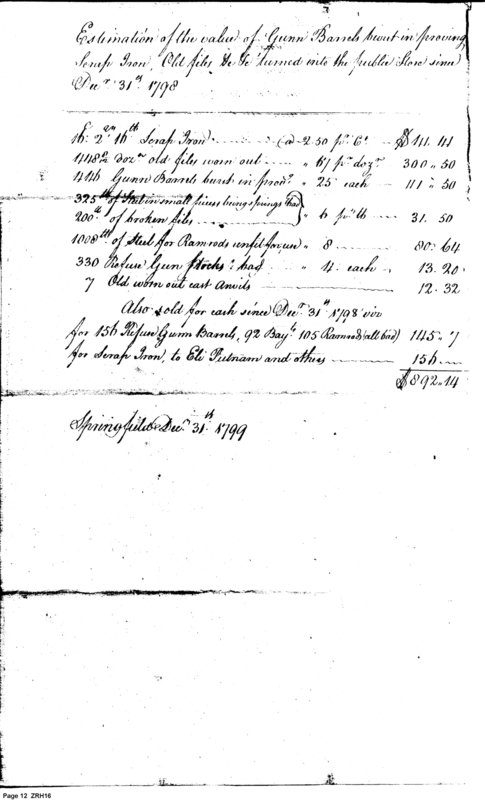 Estimation of the value of Gunn Barrels burst in proving
Scrap Iron, Old files &c &c turned into the public Store since
Decr 31st 1798
16. 2 16lb Scrap Iron ........ @ 2.50 pr Ct — $ 41. 41
448 dozn old files worn out ..... " 67 pr dozn 300 " 50
446 Gunn Barrels burst in provg " 25 each — 111 " 50
325lb of Steel in small pieces being springs bad
200lb of broken files } " 6 pr lb — 31. 50
1008lb of Steel for Ramrods unfit for use " 8 — 80. 64
330 Refuse Gun Stocks bad .... " 4 . each — 13. 20
7 Old worn out cast Anvils — 12. 32
Also sold for cash since Decr 31st 1798 viz
for 156 Refuse Gunn Barrels, 92 Bayts 105 Ramrods (all bad) 145 " 7
for Scrap Iron, to Eli Putnam and others — 156 —
$ 892 " 14
Springfield Decr 31st 1799
Page 12 ZRH16